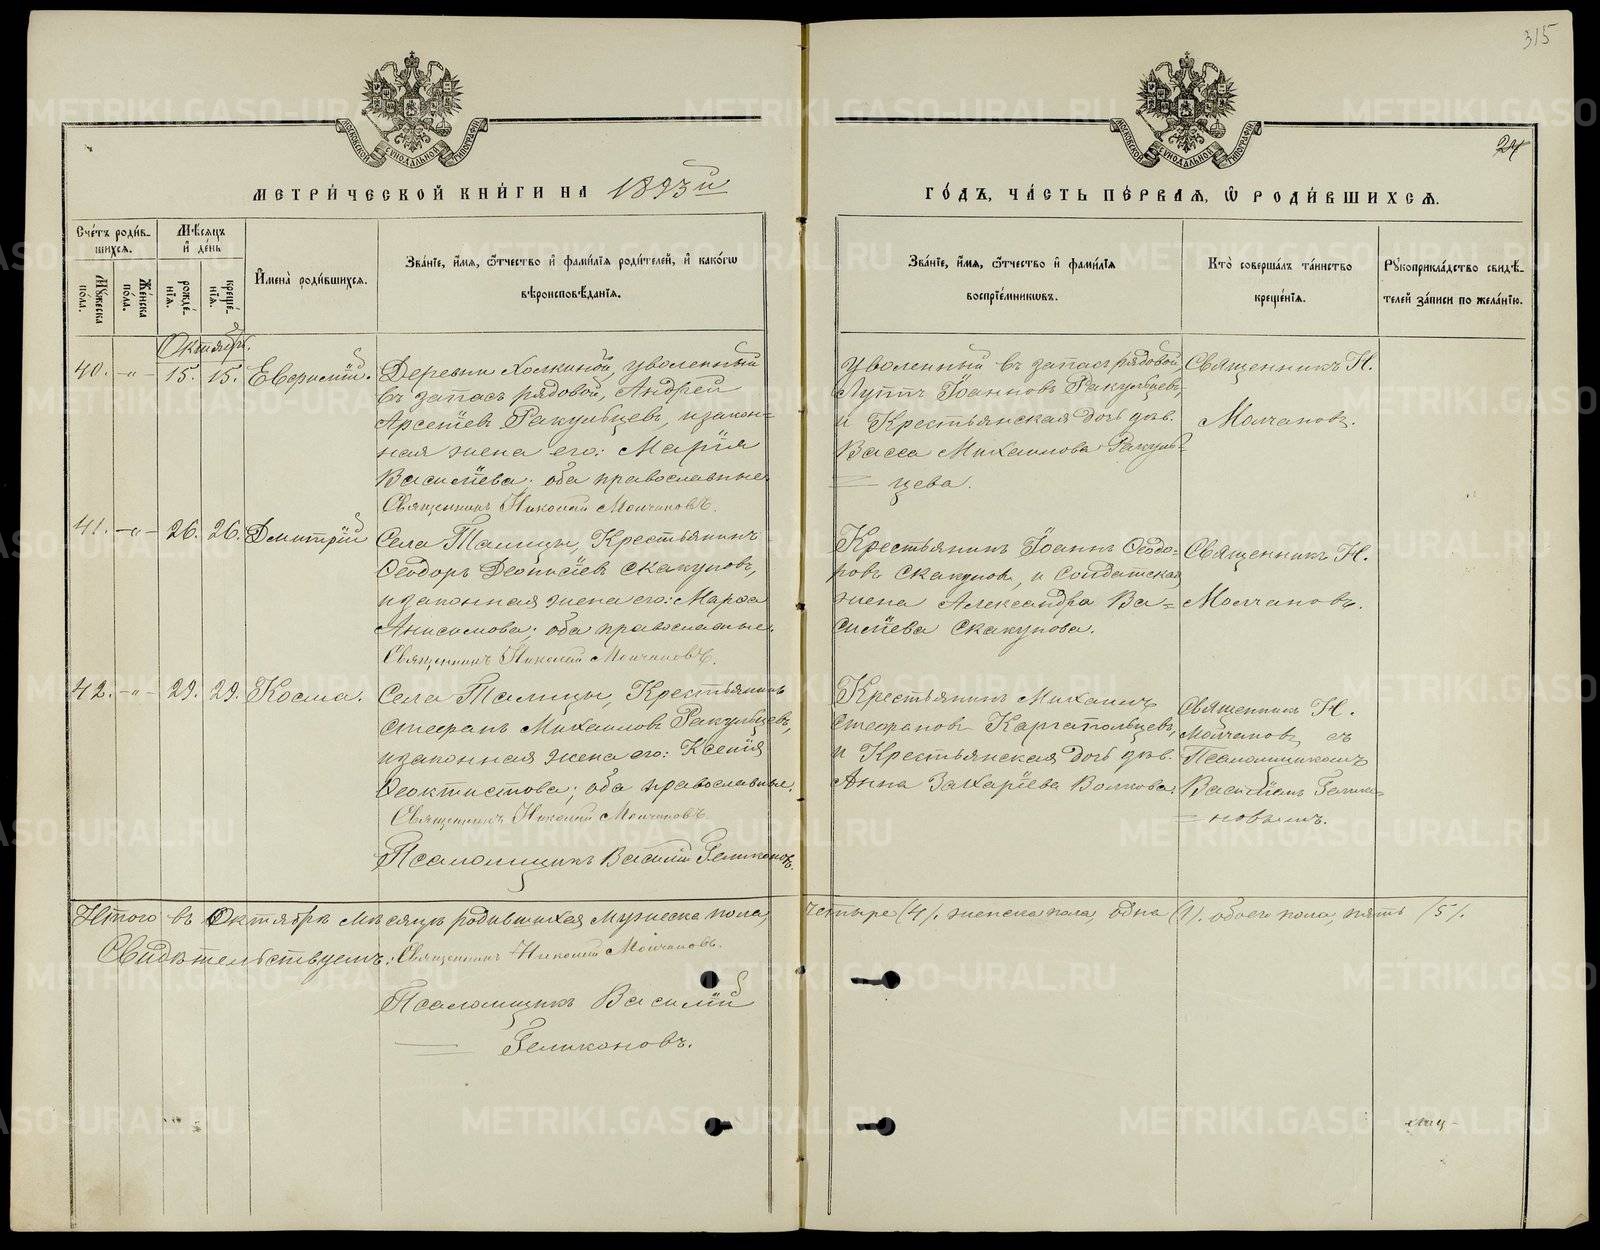 315
24
МЕТРИ́ЧЕСКОЙ КНИ́ГИ НА 1893й
ГО́ДЪ, ЧА́СТЬ ПЕ́РВАЯ, Ѿ РОДИ́ВШИХСЯ.
Сче́тъ роди́в-
шихся.
Мѣ́сяцъ
и де́нь
Му́жеска
по́ла.
Же́нска
по́ла.
рожде́-
нія.
креще́-
нія.
Имена̀ роди́вшихся.
Зва́ніе, и́мя, ѻ́тчество и фами́лія роди́телей, и како́гѡ
вѣроисповѣ́данія.
Зва́ніе, и́мя, ѻ́тчество и фами́лія
воспріе́мникѡвъ.
Кто̀ соверша́лъ та́инство
креще́нія.
Рукоприкла́дство свидѣ́-
телей за́писи по жела́нію.
Октябрь.
40. -„- 15. 15. Евѳимій.
Деревни Холкиной, уволенный
въ запасъ рядовой, Андрей
Арсетіевъ Ракульцевъ, и закон=
ная жена его: Марія
Василіева; оба православные.
Священникъ Николай Молчановъ.
Уволенный въ запасъ рядовой
Луппъ Іоанновъ Ракульцевъ,
и Крестьянская дочь дѣв.
Васса Михаилова Ракуль=
= цева.
Священникъ Н.
Молчановъ.
41. -„- 26. 26. Дмитрій
Села Талицы, Крестьянинъ
Ѳеодоръ Діонисіевъ Скакуновъ,
и законная жена его: Марѳа
Анисимова; оба православные.
Священникъ Николай Молчановъ.
Крестьянинъ Іоаннъ Ѳеодо-
ровъ Скакуновъ, и солдатская
жена Александра Ва=
силіева Скакунова.
Священникъ Н.
Молчановъ.
42. -„- 29. 29. Косма.
Села Талицы, Крестьянинъ
Стефанъ Михаиловъ Ракульцевъ,
и законная жена его: Ксенія
Ѳеоктистова; оба православные.
Священникъ Николай Молчановъ
Псаломщикъ Василій Геликоновъ.
Крестьянинъ Михаилъ
Стефановъ Каргапольцевъ,
и Крестьянская дочь дѣв.
Анна Захаріева Волкова.
Священникъ Н.
Молчановъ съ
Псаломщикомъ
Василіемъ Гелико=
= новымъ.
Итого въ Октябрѣ мѣсяцѣ родившихся мужеска пола, четыре (4). женска пола, одна (1). обоего пола, пять (5).
Свидѣтельствуемъ: Священникъ Николай Молчановъ.
Псаломщикъ Василій
Геликоновъ.
METRIKI.GASO-URAL.RU